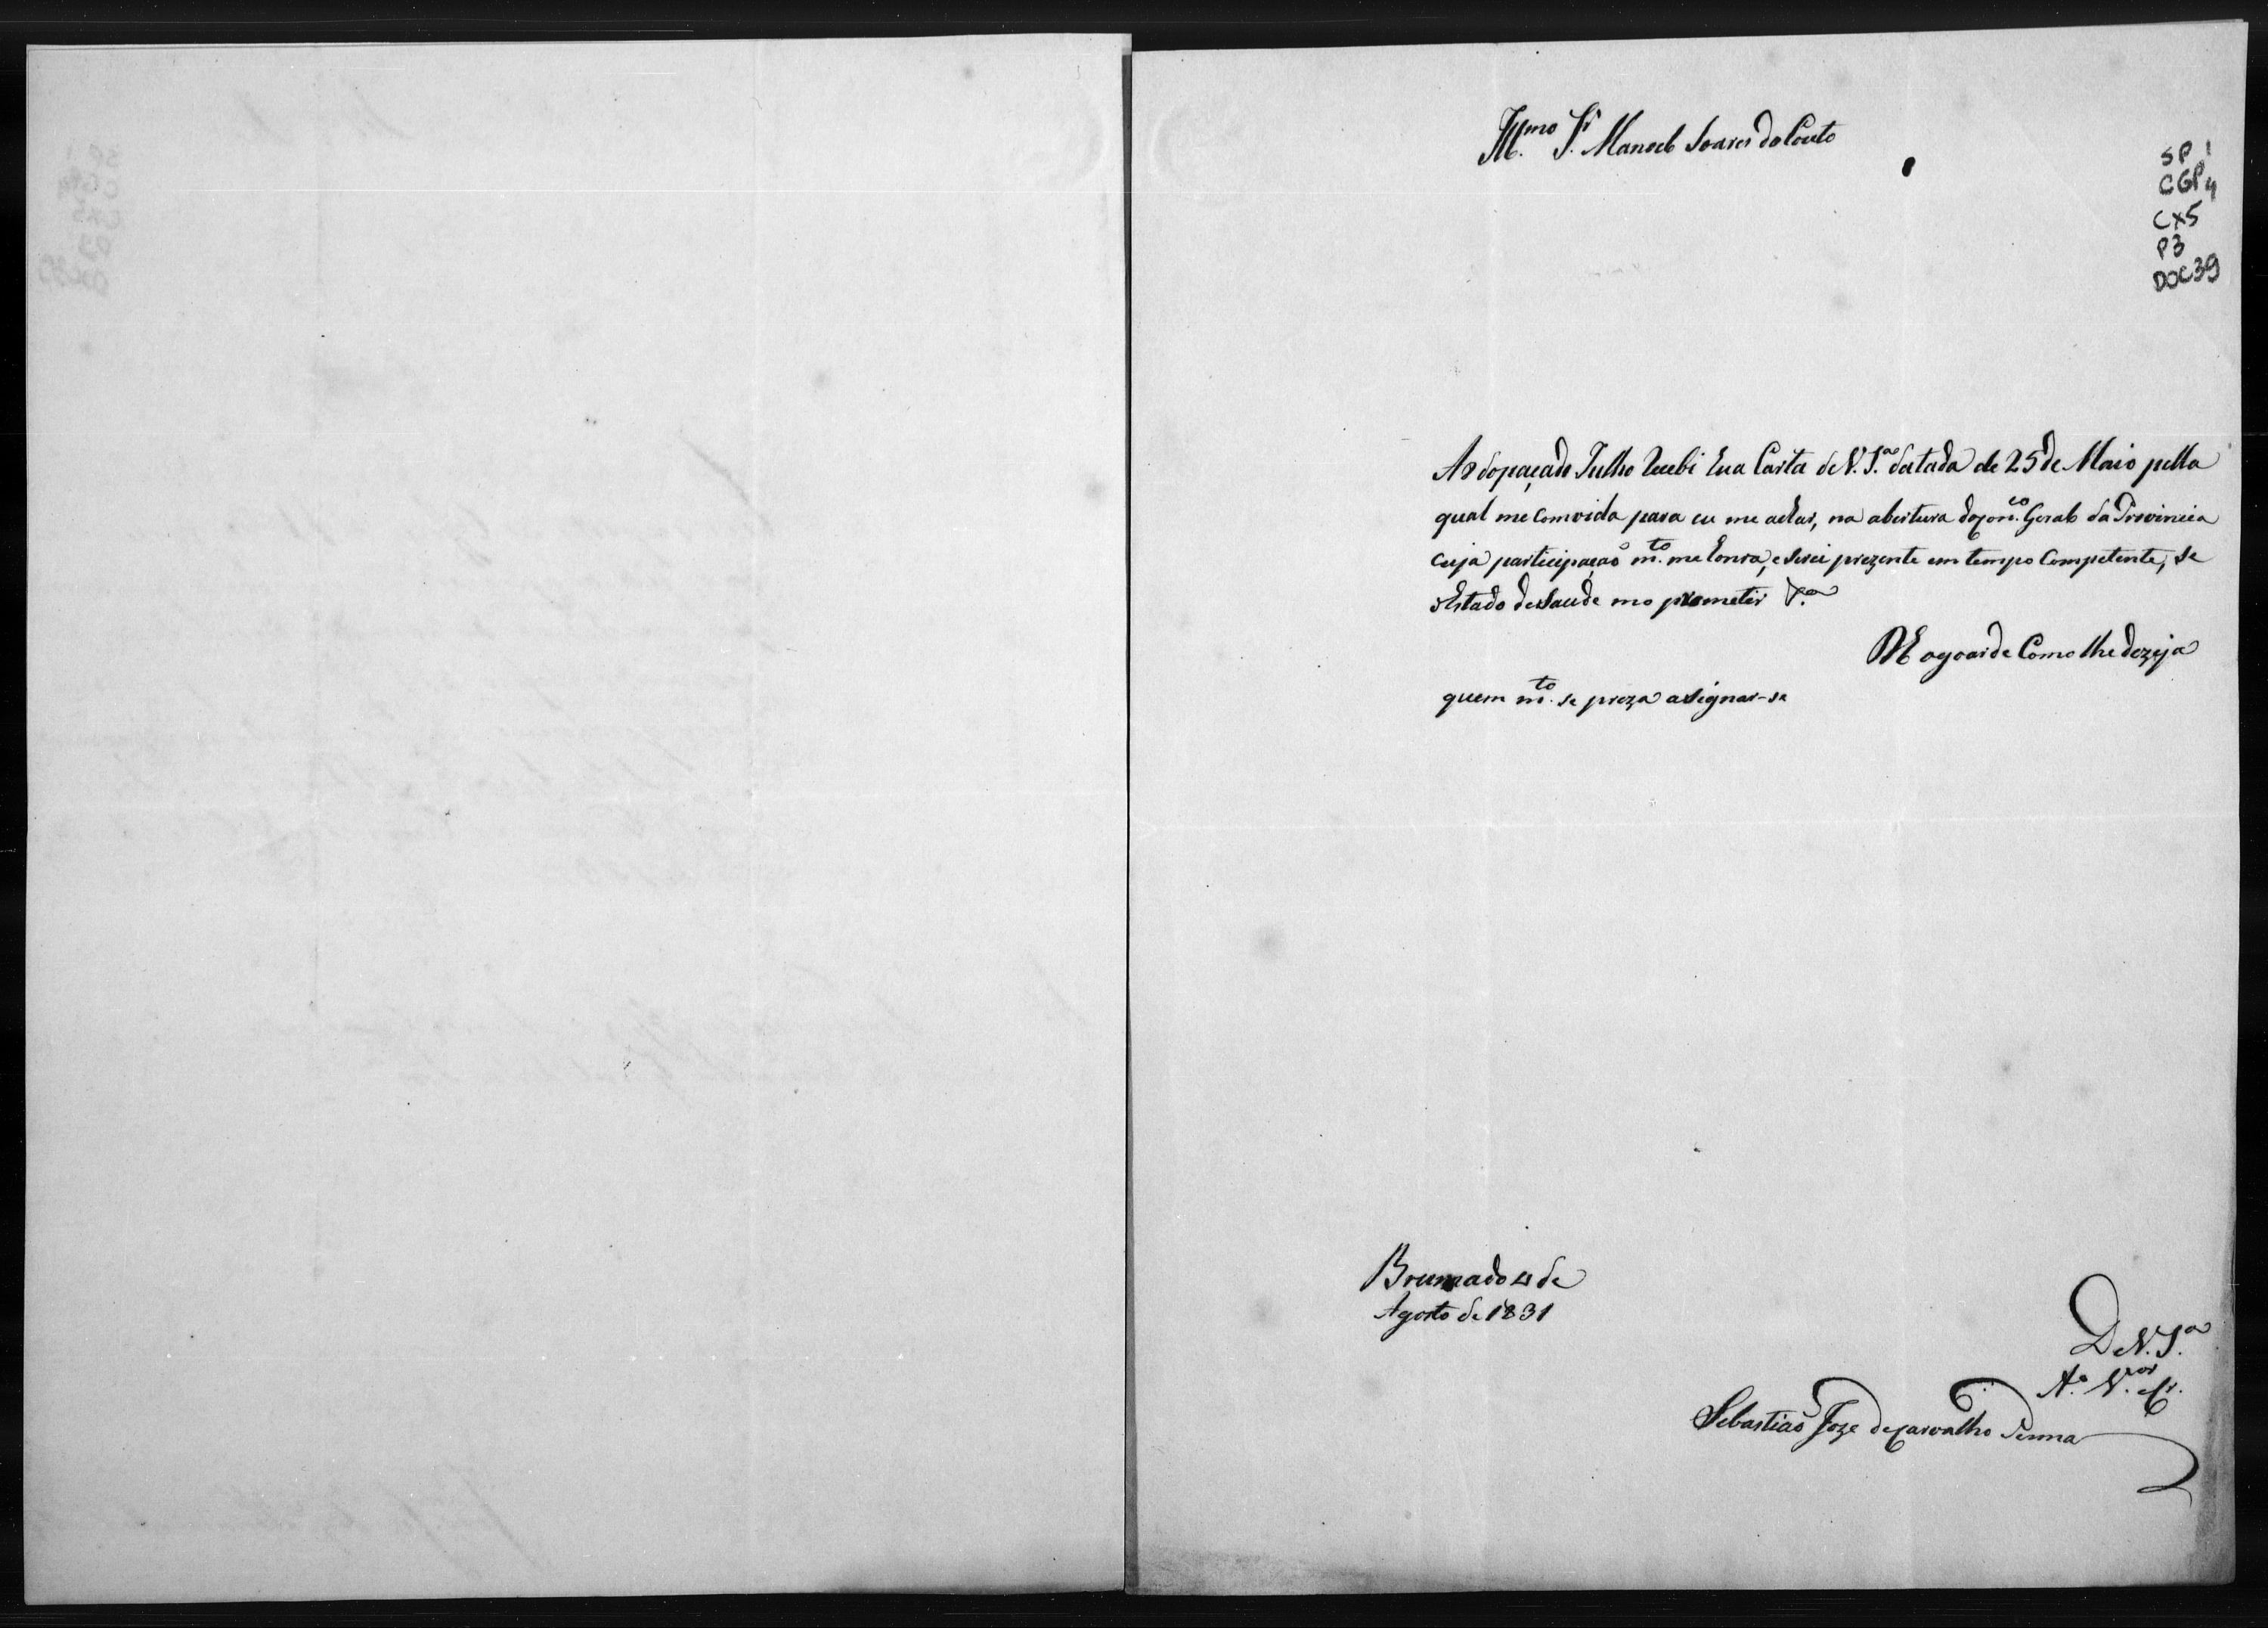 Ill.mo Sr. Manoel Soares do Couto
SP 1
CGP 4
CX5
P3
DOC39
A 8 do paçado Julho recebi hua Carta de V. S.a datada de 25 de Maio pella
qual me comvida para eu me achar, na abertura do con.co Geral da Provincia
cuja participação m.to me honra, e serei prezente em tempo Competente, se
o Estado de Saude mo prometir
Ds o goarde Como lhe dezeja
quem m.to se preza asignar-se
Brumado 4 de
Agosto de 1831
De V. S.a
A.o V.or
Sebastião Joze de Carvalho Penna